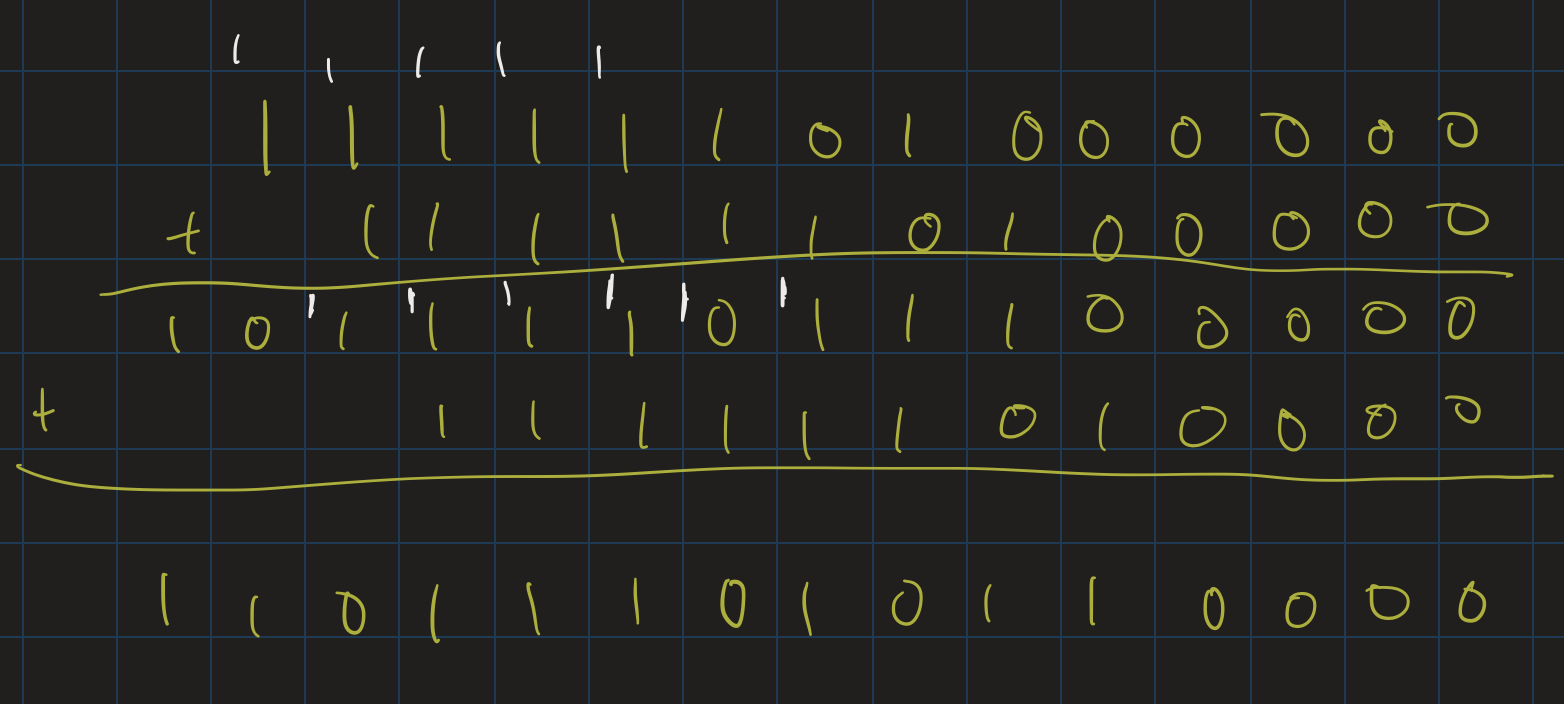 1 1 1 1 1
1 1 1 1 1 1 0 1 0 0 0 0 0 0
+ 1 1 1 1 1 1 0 1 0 0 0 0 0
1 0 1 1 1 1 0 1 1 1 0 0 0 0 0
1 1 1 1 1 1
+ 1 1 1 1 1 1 0 1 0 0 0 0
1 1 0 1 1 1 0 1 0 1 1 0 0 0 0